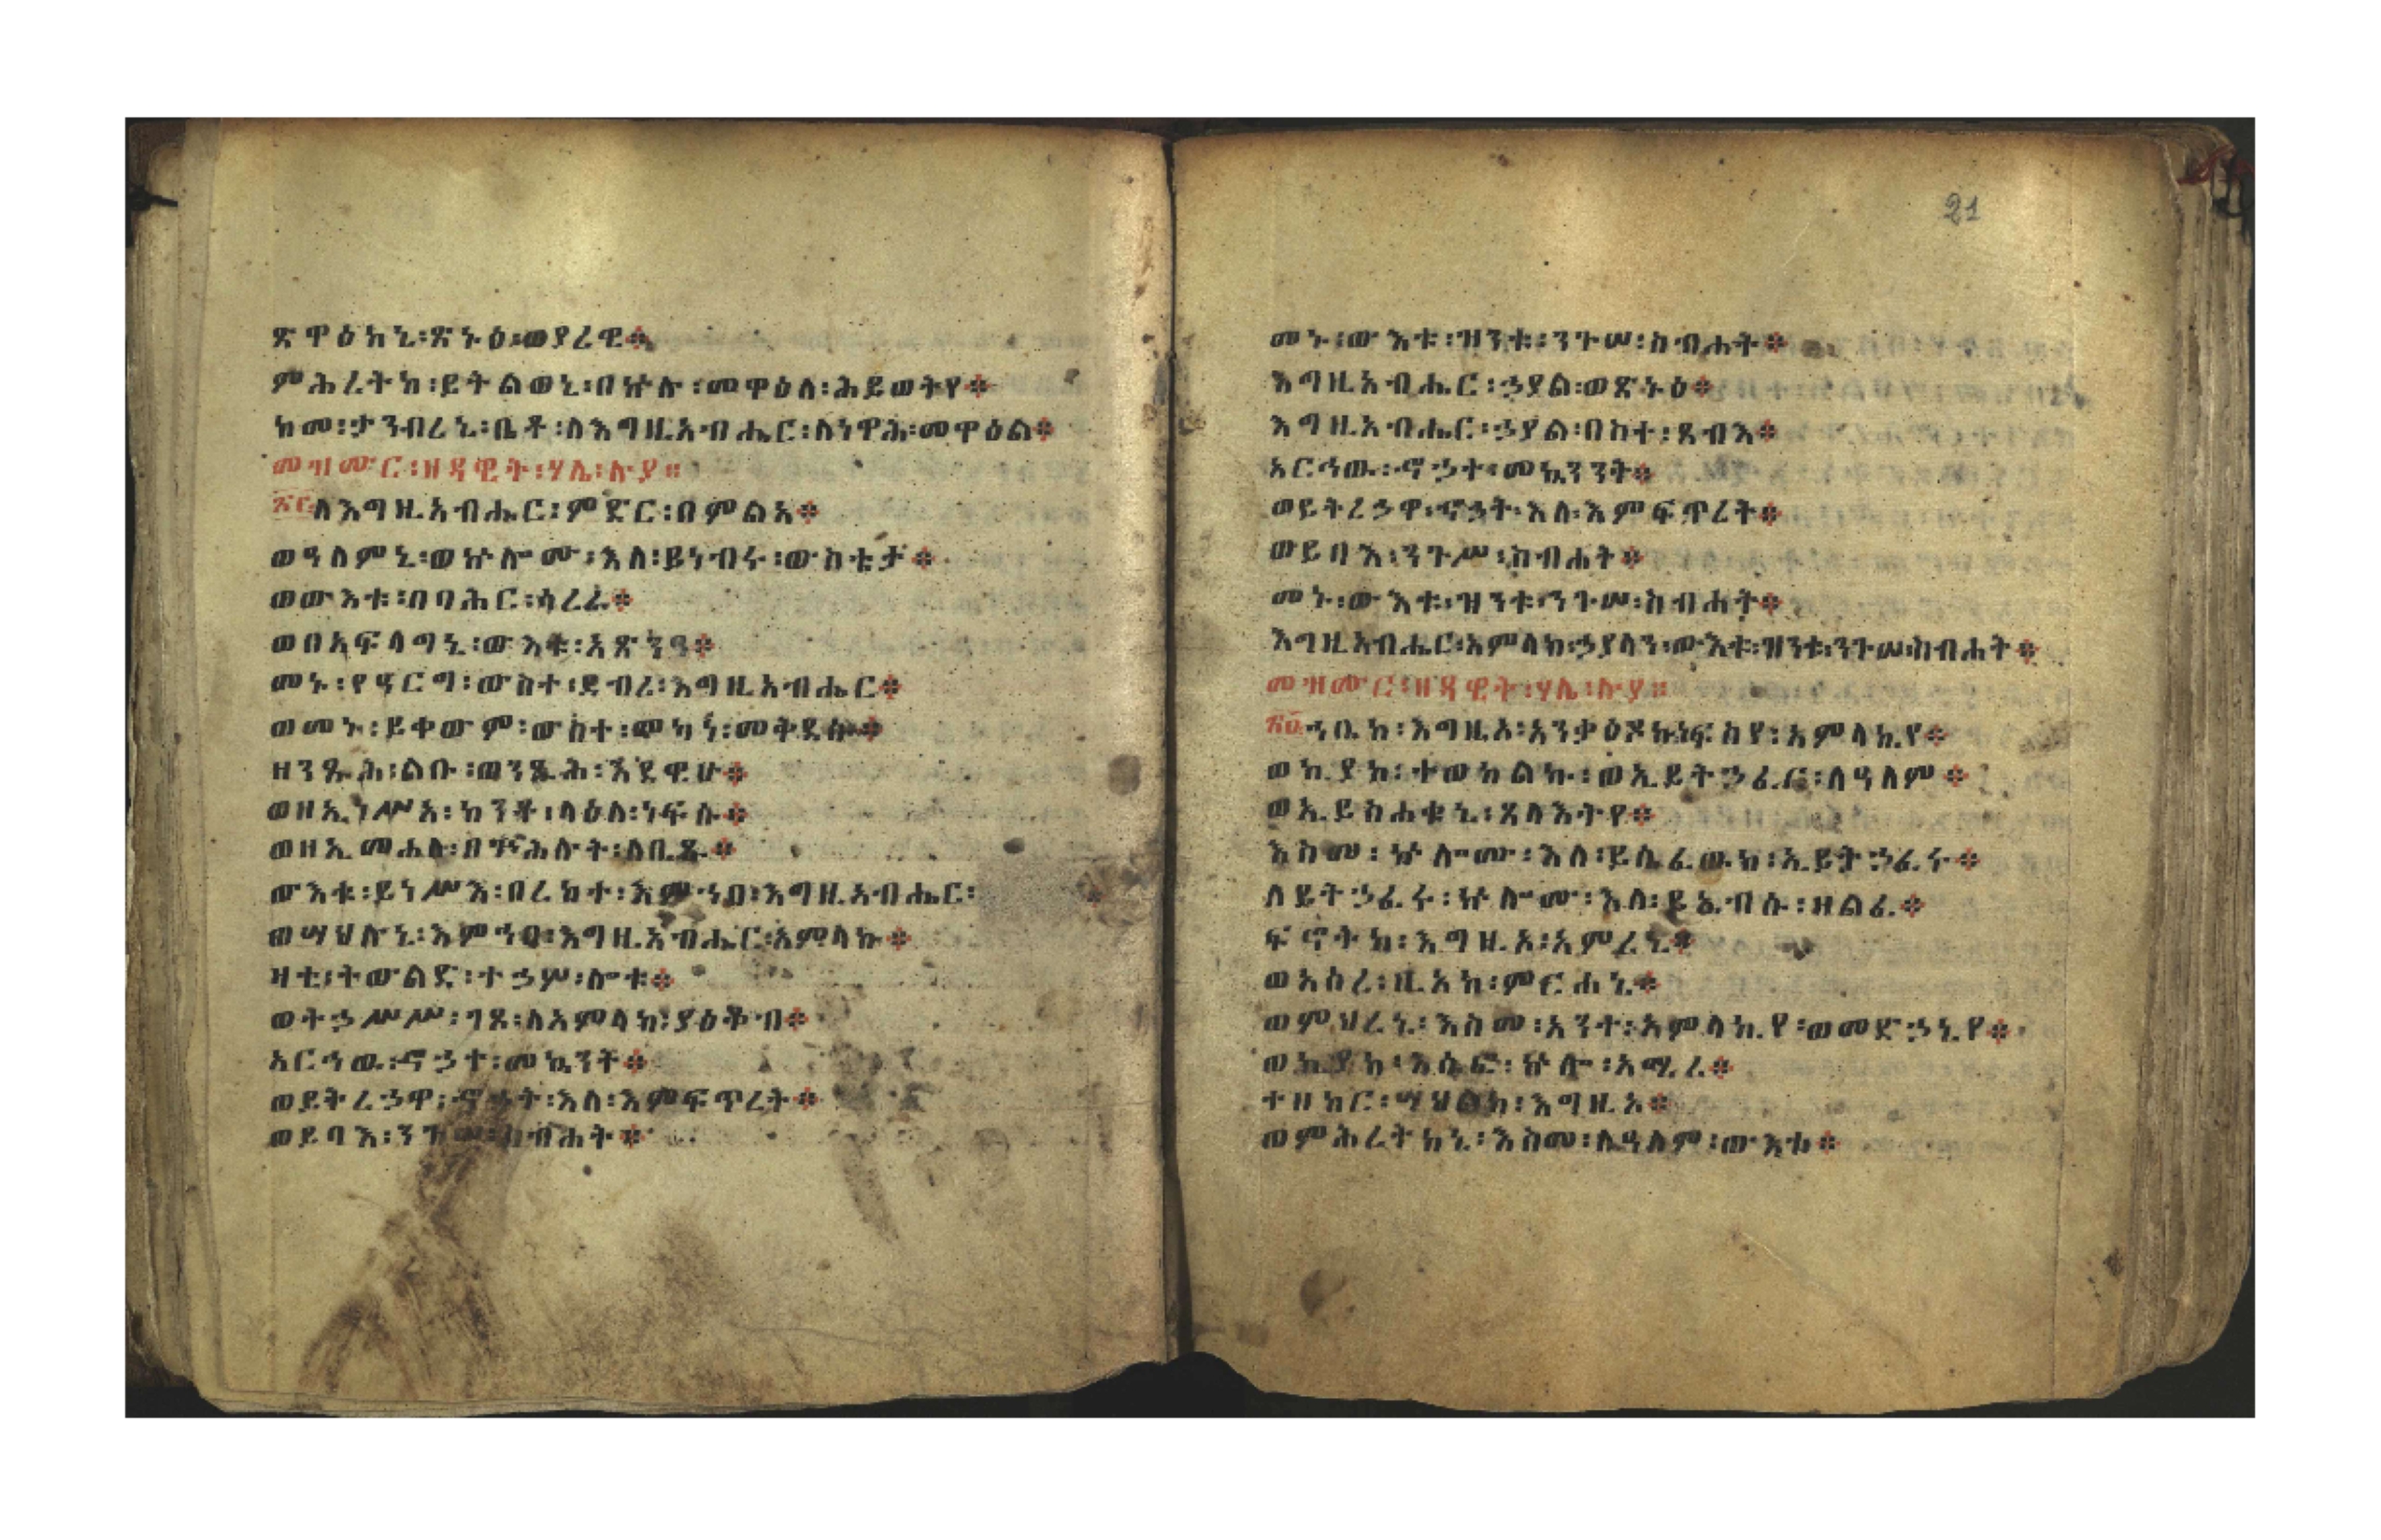 ጽዋዕከኒ፡ጽኑዕ፡ወያረዊ።
ምሕረትከ፡ይትልወኒ፡በኵሉ፡መዋዕለ፡ሕይወትየ።
ከመ፡ታንብረኒ፡ቤቶ፡ለእግዚአብሔር፡ለነዋሕ፡መዋዕል።
መዝሙር፡ዘዳዊት፡ሃሌ፡ሉያ።
፳፫ለእግዚአብሔር፡ምድር፡በምልአ።
ወዓለምኒ፡ወኵሎሙ፡እለ፡ይነብሩ፡ውስቴታ።
ወውእቱ፡በባሕር፡ሳረራ።
ወበአፍላግኒ፡ውእቱ፡አጽንዓ።
መኑ፡የዓርግ፡ውስተ፡ደብረ፡እግዚአብሔር።
ወመኑ፡ይቀውም፡ውስተ፡መካነ፡መቅደሱ።
ዘንጹሕ፡ልቡ፡ወንጹሕ፡እደዊሁ።
ወዘኢነሥአ፡ከንቶ፡ላዕለ፡ነፍሱ።
ወዘኢመሐለ፡በጕሕሉት፡ለቢጹ።
ውእቱ፡ይነሥእ፡በረከተ፡እምኀበ፡እግዚአብሔር፡
ወሣህሉኒ፡እምኀበ፡እግዚአብሔር፡አምላኩ።
ዛቲ፡ትውልድ፡ተኃሥ፡ሎቱ።
ወትኃሥሥ፡ገጸ፡ለአምላከ፡ያዕቆብ።
አርኀዉ፡ኆኃተ፡መኳንት።
ወይትረኃዋ፡ኆኃት፡እለ፡እምፍጥረት።
ወይባእ፡ንጉሠ፡ስብሐት።
መኑ፡ውእቱ፡ዝንቱ፡ንጉሠ፡ስብሐት።
እግዚአብሔር፡ኃያል፡ወጽኑዕ።
እግዚአብሔር፡ኃያል፡በስተ፡ጸብእ።
አርኀዉ፡ኆኃተ፡መኳንንት።
ወይትረኃዋ፡ኆኃት፡እለ፡እምፍጥረት።
ወይባእ፡ንጉሥ፡ስብሐት።
መኑ፡ውእቱ፡ዝንቱ፡ንጉሠ፡ስብሐት።
እግዚአብሔር፡አምላከ፡ኃያላን፡ውእቱ፡ዝንቱ፡ንጉሠ፡ስብሐት።
መዝሙር፡ዘዳዊት፡ሃሌ፡ሉያ።
፳፬ኀቤከ፡እግዚአ፡አንቃዕዶኩ፡ነፍስየ፡አምላኪየ።
ወኪያከ፡ተወከልኩ፡ወኢይትኃፈር፡ለዓለም።
ወኢይስሐቁኒ፡ጸላእትየ።
እስመ፡ኵሎሙ፡እለ፡ይሴፈዉከ፡ኢይትኃፈሩ።
ለይትኃፈሩ፡ኵሎሙ፡እለ፡ይኤብሱ፡ዘልፈ።
ፍኖትከ፡እግዚአ፡አምረኒ።
ወአሰረ፡ዚአከ፡ምርሐኒ።
ወምህረኒ፡እስመ፡አንተ፡አምላኪየ፡ወመድኃኒየ።
ወኪያከ፡እሴፎ፡ኵሎ፡አሚረ።
ተዘከር፡ሣህልከ፡እግዚአ።
ወምሕረትከኒ፡እስመ፡ለዓለም፡ውእቱ።
21